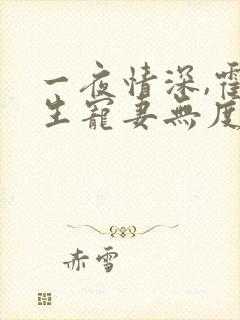 一夜情深,霍
生寵妻無度
赤雪